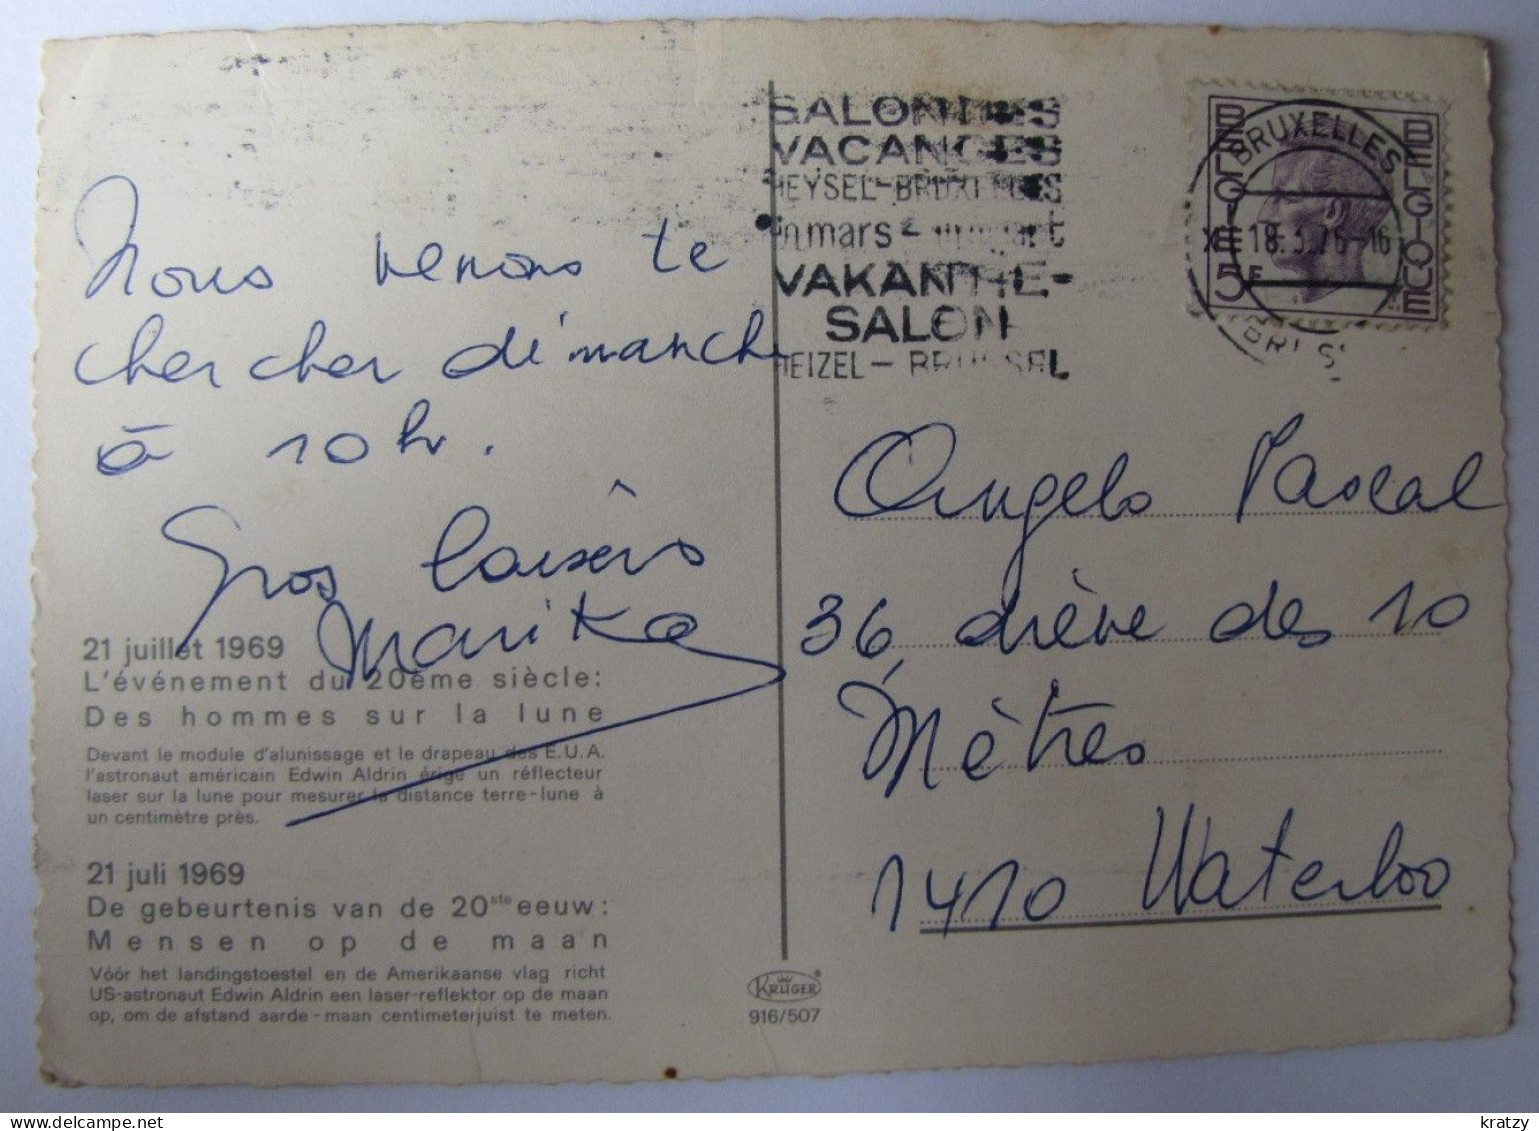 SALON DES
VACANCES
HEYSEL - BRUXELLES
mars -
VAKANTIE-
SALON
HEIZEL - BRUSSEL
BELGIE
BELGIQUE
5F
BRUXELLES
18.3.76-16
BRUSSEL
Nous venons te
chercher dimanche
à 10 hr.
Gros baisers
Marika
Angelo Pascal
36, drève des 10
Mètres
1410 Waterloo
21 juillet 1969
L'événement du 20ème siècle:
Des hommes sur la lune
Devant le module d'alunissage et le drapeau des E.U.A.
l'astronaut américain Edwin Aldrin érige un réflecteur
laser sur la lune pour mesurer la distance terre-lune à
un centimètre près.
21 juli 1969
De gebeurtenis van de 20ste eeuw:
Mensen op de maan
Vóór het landingstoestel en de Amerikaanse vlag richt
US-astronaut Edwin Aldrin een laser-reflektor op de maan
op, om de afstand aarde-maan centimeterjuist te meten.
KRÜGER®
916/507
kratzy